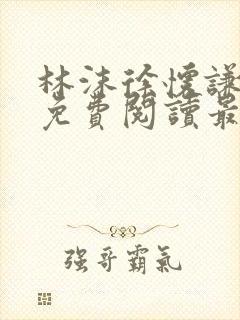 林沫徐懷謙
免費閱讀最
强哥霸氣